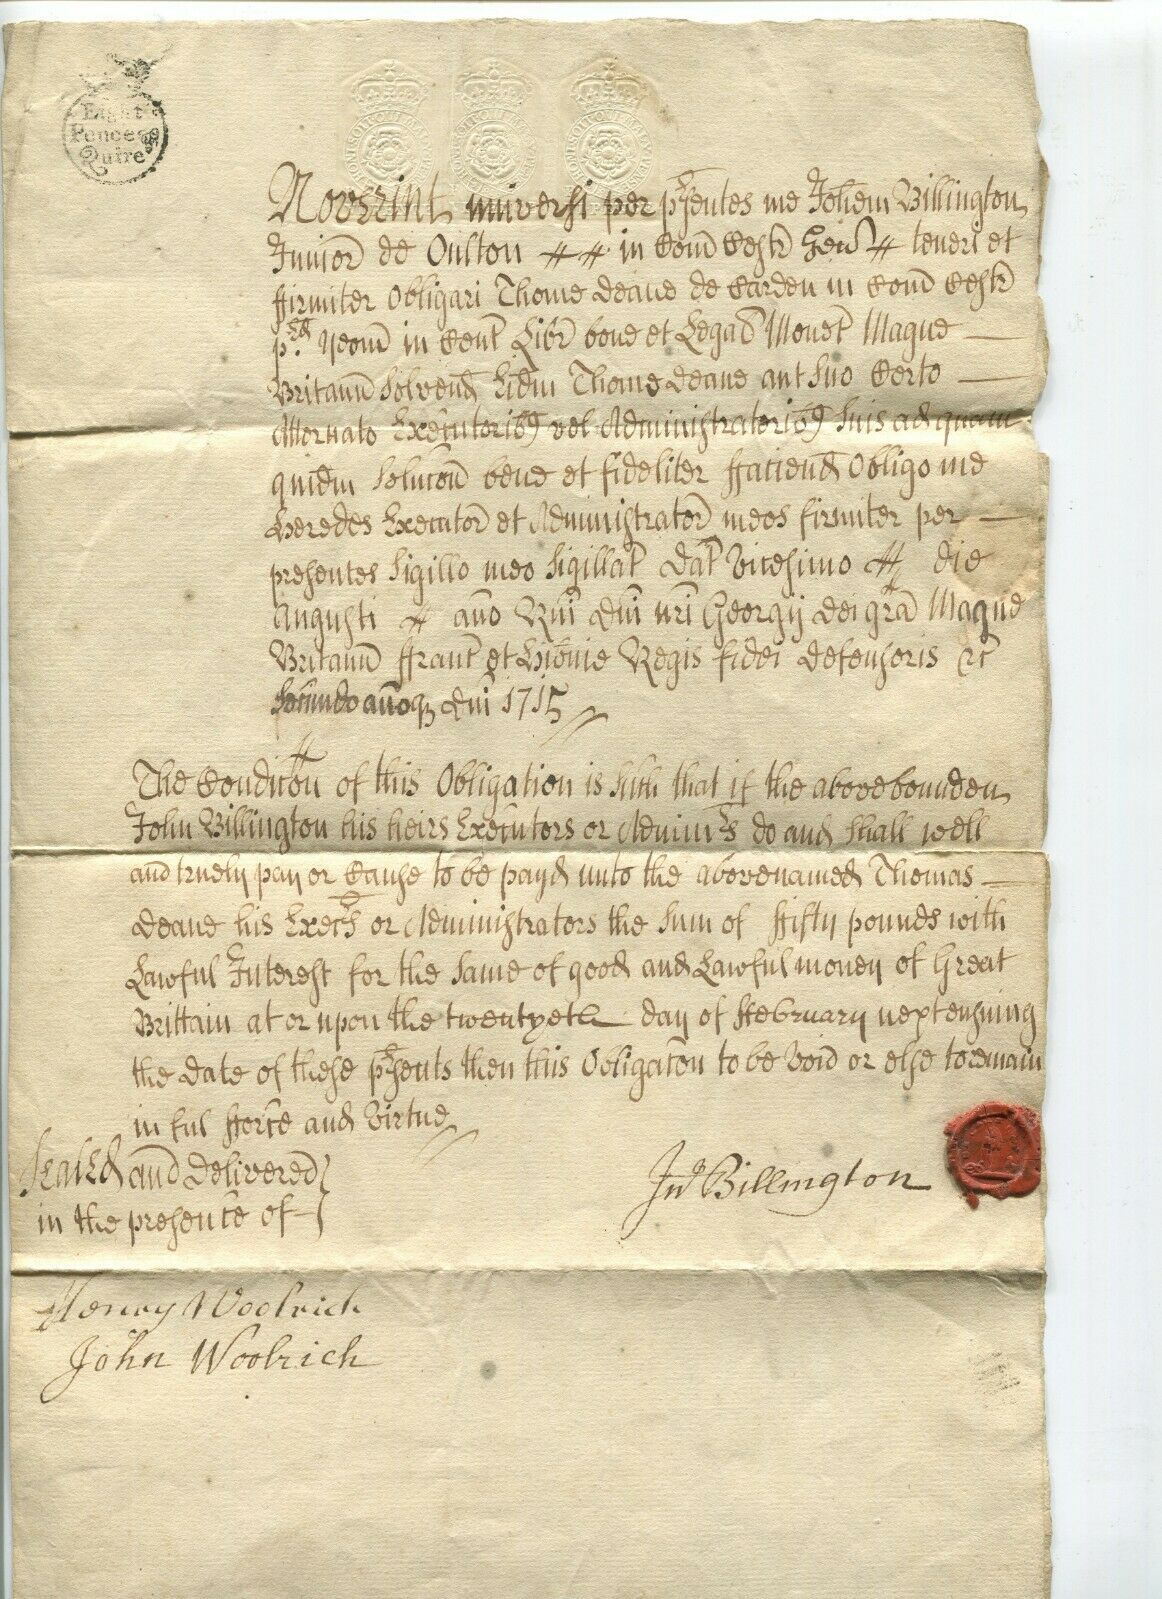 Eight
Pence pr
Quire
HONI SOIT QUI MAL Y PENSE
HONI SOIT QUI MAL Y PENSE
HONI SOIT QUI MAL Y PENSE
Noverint universi per prsentes me Johem Billington
Junior de Oulton in Com Cestr Gen teneri et
ffirmiter Obligari Thome Deane de Carden in Com Cestr
pred yeom in Cent Libr bone et Legal Monet Magne
Britann Solvend Eidm Thome Deane aut Suo Certo
Attornato Executoribq vel Administratoribq Suis ad quam
quidm Solucon bene et fideliter ffaciend Obligo me
Heredes Executor et Administrator meos firmiter per
presentes Sigillo meo Sigillat Dat Vicesimo die
Augusti ano Rni Dni nri Georgij dei gra Magne
Britann ffranc et Hibnie Regis fidei defensoris &c
Secundo anoq Dni 1715
The Condicon of this Obligation is Such that if the abovebounden
John Billington his heirs Executors or Adminrs do and Shall well
and truely pay or Cause to be payd unto the abovenamed Thomas
Deane his Execrs or Administrators the Sum of ffifty pounds with
Lawful Interest for the Same of good and Lawful money of Great
Brittain at or upon the twentyeth day of ffebruary next ensuing
the Date of these prsents then this Obligacon to be Void or else to remain
in ful fforce and Virtue
Sealed and Delivered
in the presence of
Jno Billington
Henry Woolrich
John Woolrich